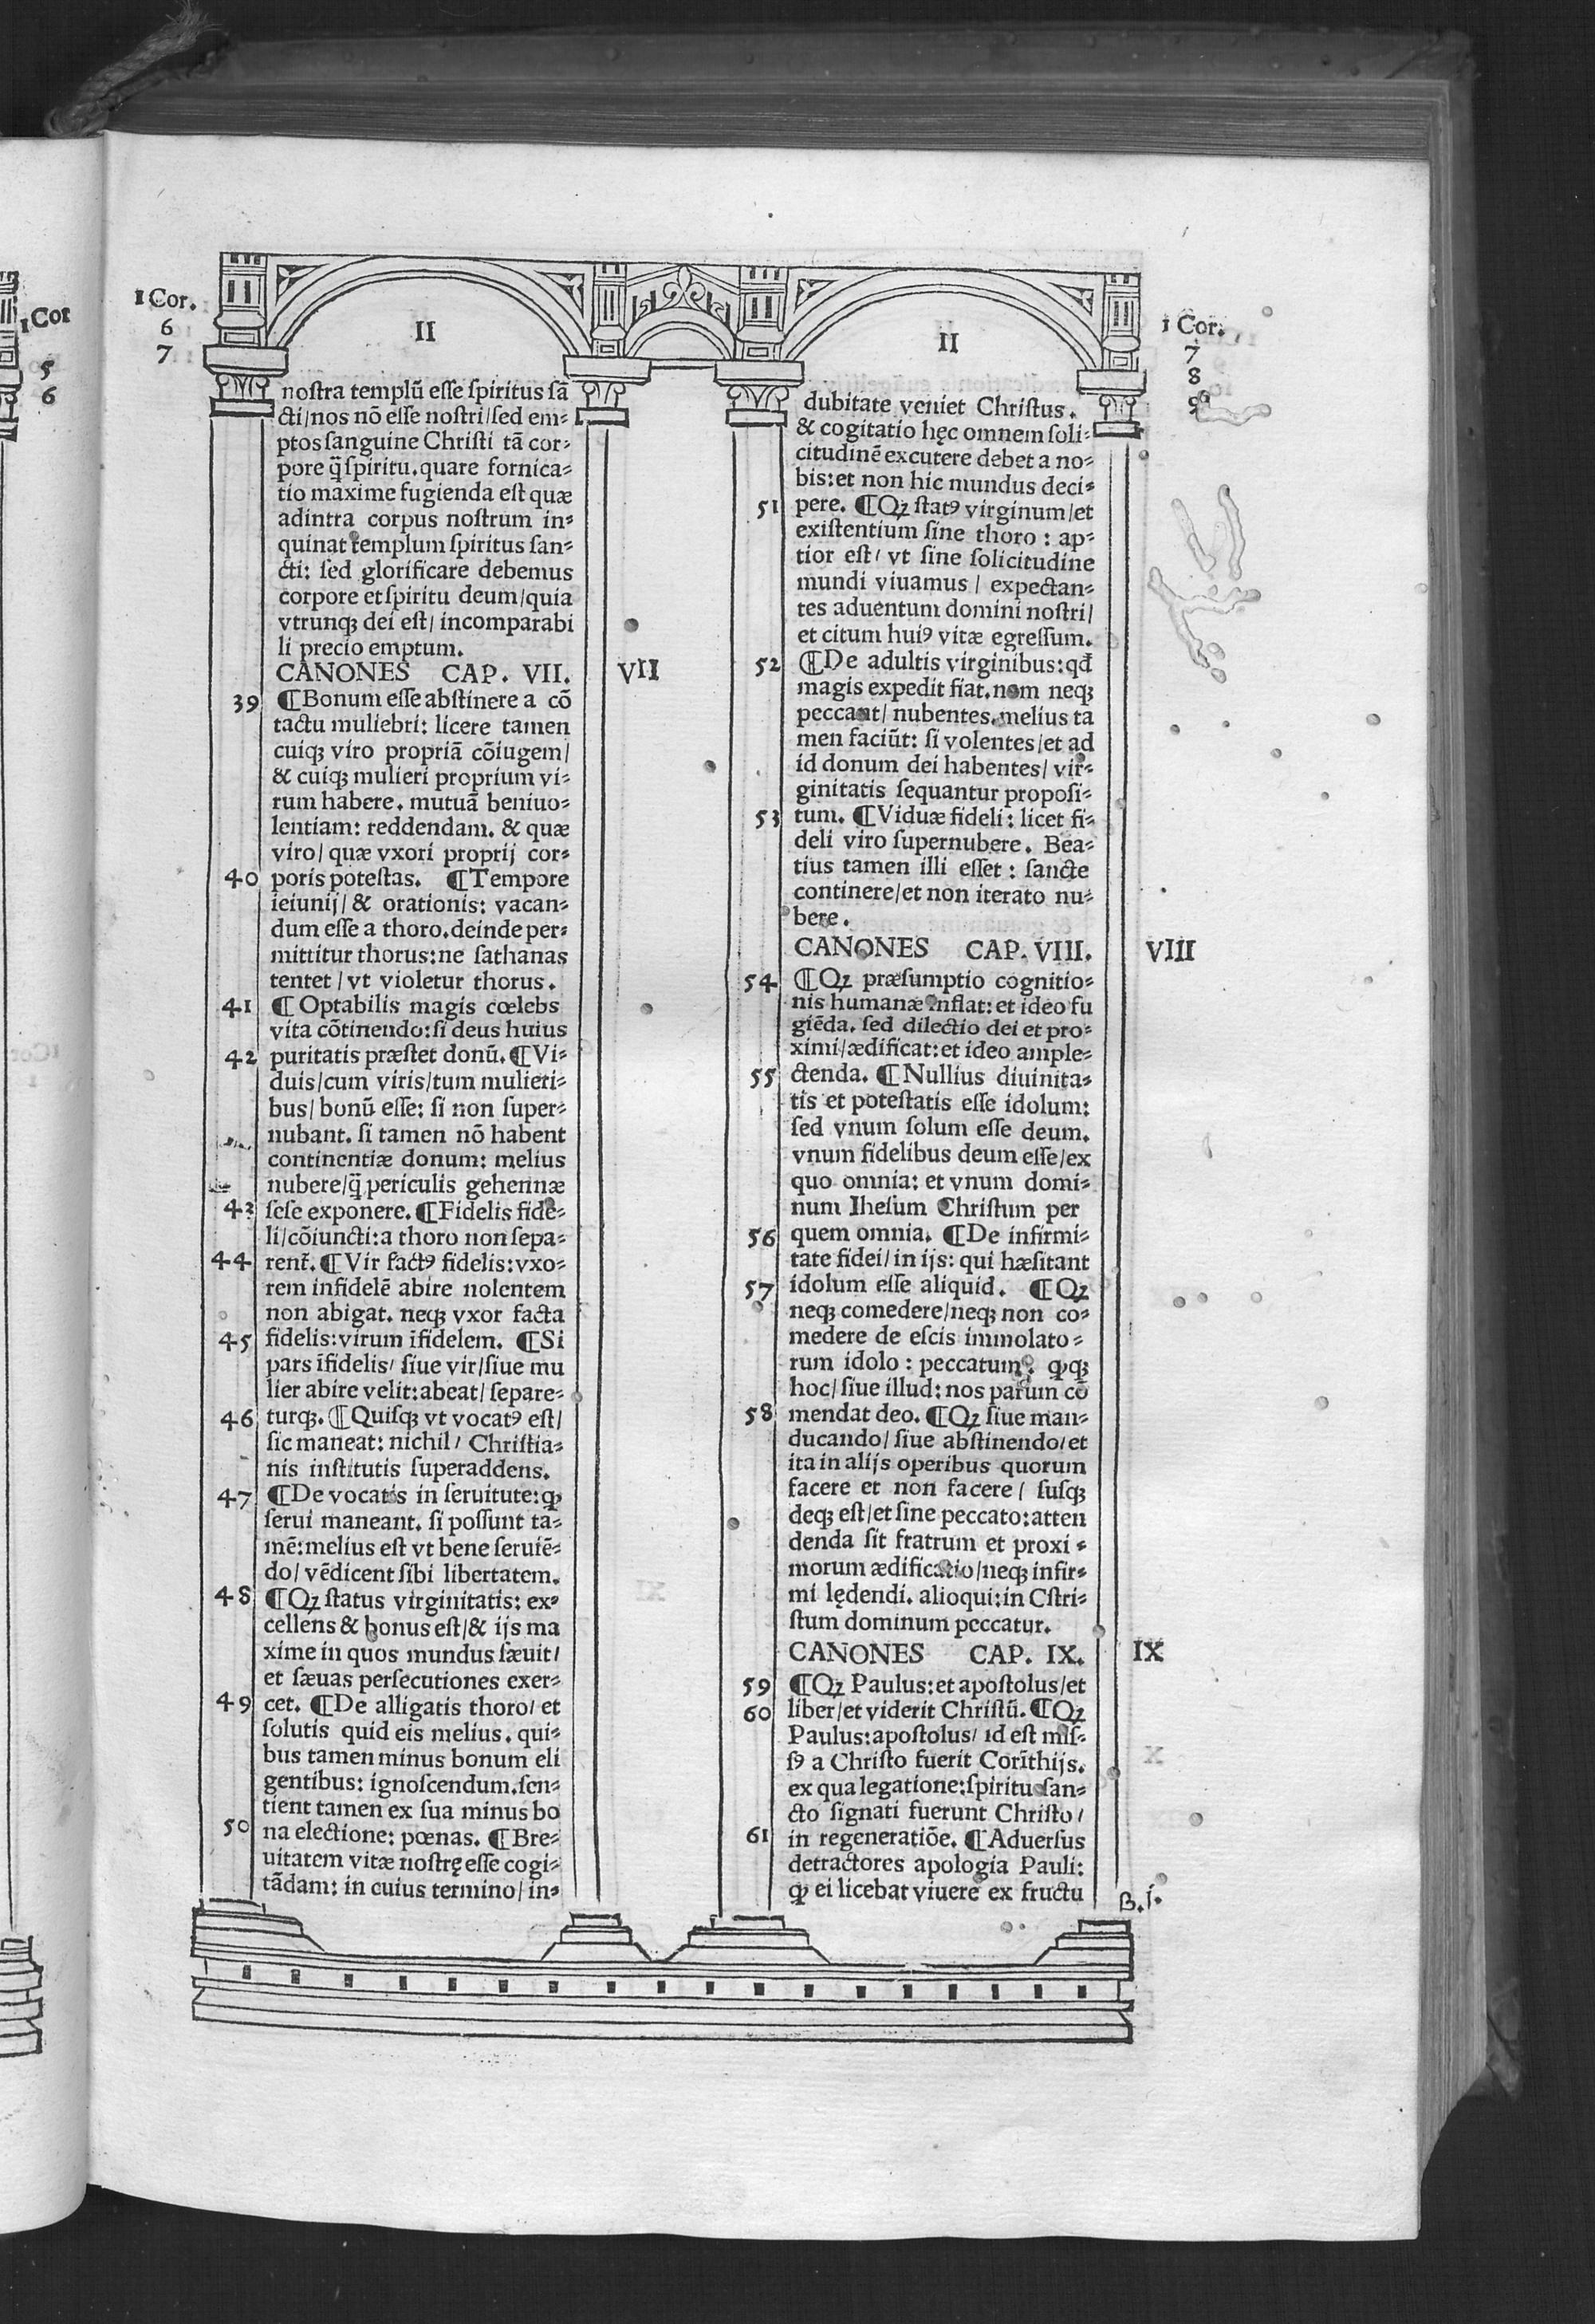 1 Cor
5
6
1 Cor.
6
7
II
nostra templū esse spiritus sā
cti/nos nō esse nostri/sed em-
ptos sanguine Christi tā cor-
pore q̄ spiritu.quare fornica-
tio maxime fugienda est quæ
adintra corpus nostrum in-
quinat templum spiritus san-
cti: sed glorificare debemus
corpore et spiritu deum/quia
vtrunqꝫ dei est/ incomparabi
li precio emptum.
CANONES CAP. VII.
VII
39 ¶Bonum esse abstinere a cō
tactu muliebri: licere tamen
cuiqꝫ viro propriā cōiugem/
& cuiqꝫ mulieri proprium vi-
rum habere. mutuā beniuo-
lentiam: reddendam. & quæ
viro/ quæ vxori proprij cor-
40 poris potestas. ¶Tempore
ieiunij/ & orationis: vacan-
dum esse a thoro.deinde per-
mittitur thorus:ne sathanas
tentet /vt violetur thorus.
41 ¶ Optabilis magis cœlebs
vita cōtinendo:si deus huius
42 puritatis præstet donū. ¶Vi-
duis/cum viris/tum mulieri-
bus/ bonū esse: si non super-
nubant. si tamen nō habent
continentiæ donum: melius
nubere/q̄ periculis gehennæ
43 sese exponere. ¶Fidelis fide-
li/cōiuncti:a thoro non sepa-
44 rent̄. ¶Vir factꝰ fidelis:vxo-
rem infidelē abire nolentem
non abigat. neqꝫ vxor facta
45 fidelis:virum īfidelem. ¶Si
pars īfidelis/ siue vir/siue mu
lier abire velit:abeat/ separe-
46 turqꝫ. ¶Quisqꝫ vt vocatꝰ est/
sic maneat: nichil/ Christia-
nis institutis superaddens.
47 ¶De vocatis in seruitute:ꝙ
serui maneant. si possunt ta-
mē:melius est vt bene seruiē-
do/ vēdicent sibi libertatem.
48 ¶Qꝫ status virginitatis: ex-
cellens & bonus est/& ijs ma
xime in quos mundus sæuit/
et sæuas persecutiones exer-
49 cet. ¶De alligatis thoro/ et
solutis quid eis melius. qui-
bus tamen minus bonum eli
gentibus: ignoscendum.sen-
tient tamen ex sua minus bo
50 na electione: pœnas. ¶Bre-
uitatem vitæ nostrę esse cogi-
tādam: in cuius termino/ in-
1 Cor.
7
8
9
II
dubitate veniet Christus.
& cogitatio hęc omnem soli-
citudinē excutere debet a no-
bis:et non hic mundus deci-
51 pere. ¶Qꝫ statꝰ virginum/et
existentium sine thoro: ap-
tior est/ vt sine solicitudine
mundi viuamus / expectan-
tes aduentum domini nostri/
et citum huiꝰ vitæ egressum.
52 ¶De adultis virginibus:qđ
magis expedit fiat.nam neqꝫ
peccant/ nubentes.melius ta
men faciūt: si volentes/et ad
id donum dei habentes/ vir-
ginitatis sequantur proposi-
53 tum. ¶Viduæ fideli: licet fi-
deli viro supernubere. Bea-
tius tamen illi esset: sancte
continere/et non iterato nu-
bere.
CANONES CAP. VIII.
VIII
54 ¶Qꝫ præsumptio cognitio-
nis humanæ inflat: et ideo fu
giēda. sed dilectio dei et pro-
ximi/ædificat:et ideo ample-
55 ctenda. ¶Nullius diuinita-
tis et potestatis esse idolum:
sed vnum solum esse deum.
vnum fidelibus deum esse/ex
quo omnia: et vnum domi-
num Ihesum Christum per
56 quem omnia. ¶De infirmi-
tate fidei/in ijs: qui hæsitant
57 idolum esse aliquid. ¶Qꝫ
neqꝫ comedere/neqꝫ non co-
medere de escis immolato-
rum idolo: peccatum. ꝙqꝫ
hoc/ siue illud: nos parum cō
58 mendat deo. ¶Qꝫ siue man-
ducando/ siue abstinendo/et
ita in alijs operibus quorum
facere et non facere / susqꝫ
deqꝫ est/et sine peccato:atten
denda sit fratrum et proxi-
morum ædificatio/neqꝫ infir-
mi lędendi. alioqui:in Cstri-
stum dominum peccatur.
CANONES CAP. IX.
IX
59 ¶Qꝫ Paulus:et apostolus/et
60 liber/et viderit Christū. ¶Qꝫ
Paulus:apostolus/ id est mis-
sꝰ a Christo fuerit Corīthijs.
ex qua legatione:spiritu san-
cto signati fuerunt Christo/
61 in regeneratiōe. ¶Aduersus
detractores apologia Pauli:
ꝙ ei licebat viuere ex fructu
B.j.